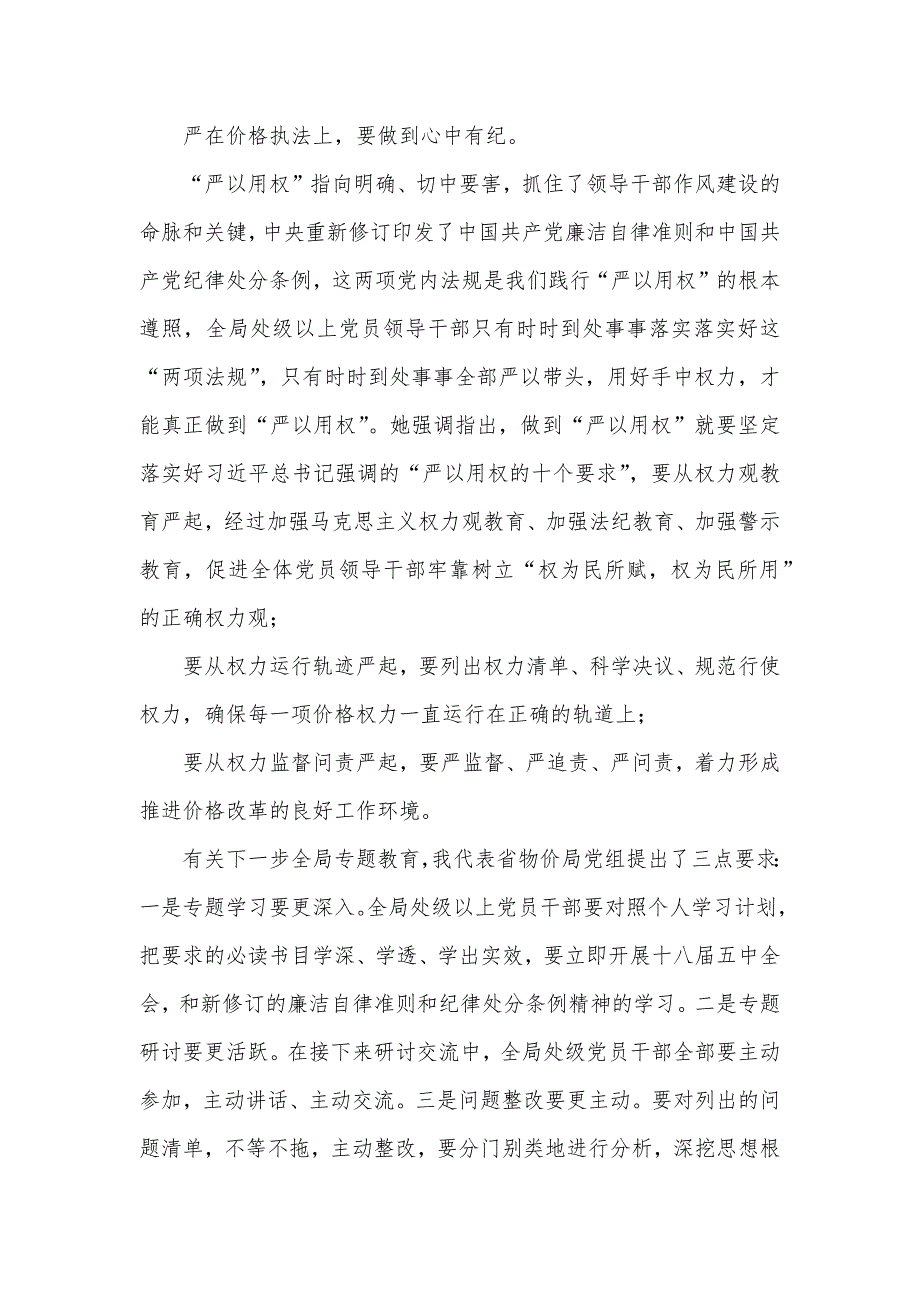 严在价格执法上，要做到心中有纪。
“严以用权”指向明确、切中要害，抓住了领导干部作风建设的
命脉和关键，中央重新修订印发了中国共产党廉洁自律准则和中国共
产党纪律处分条例，这两项党内法规是我们践行“严以用权”的根本
遵照，全局处级以上党员领导干部只有时时到处事事落实落实好这
“两项法规”，只有时时到处事事全部严以带头，用好手中权力，才
能真正做到“严以用权”。她强调指出，做到“严以用权”就要坚定
落实好习近平总书记强调的“严以用权的十个要求”，要从权力观教
育严起，经过加强马克思主义权力观教育、加强法纪教育、加强警示
教育，促进全体党员领导干部牢靠树立“权为民所赋，权为民所用”
的正确权力观；
要从权力运行轨迹严起，要列出权力清单、科学决议、规范行使
权力，确保每一项价格权力一直运行在正确的轨道上；
要从权力监督问责严起，要严监督、严追责、严问责，着力形成
推进价格改革的良好工作环境。
有关下一步全局专题教育，我代表省物价局党组提出了三点要求：
一是专题学习要更深入。全局处级以上党员干部要对照个人学习计划，
把要求的必读书目学深、学透、学出实效，要立即开展十八届五中全
会，和新修订的廉洁自律准则和纪律处分条例精神的学习。二是专题
研讨要更活跃。在接下来研讨交流中，全局处级党员干部全部要主动
参加，主动讲话、主动交流。三是问题整改要更主动。要对列出的问
题清单，不等不拖，主动整改，要分门别类地进行分析，深挖思想根